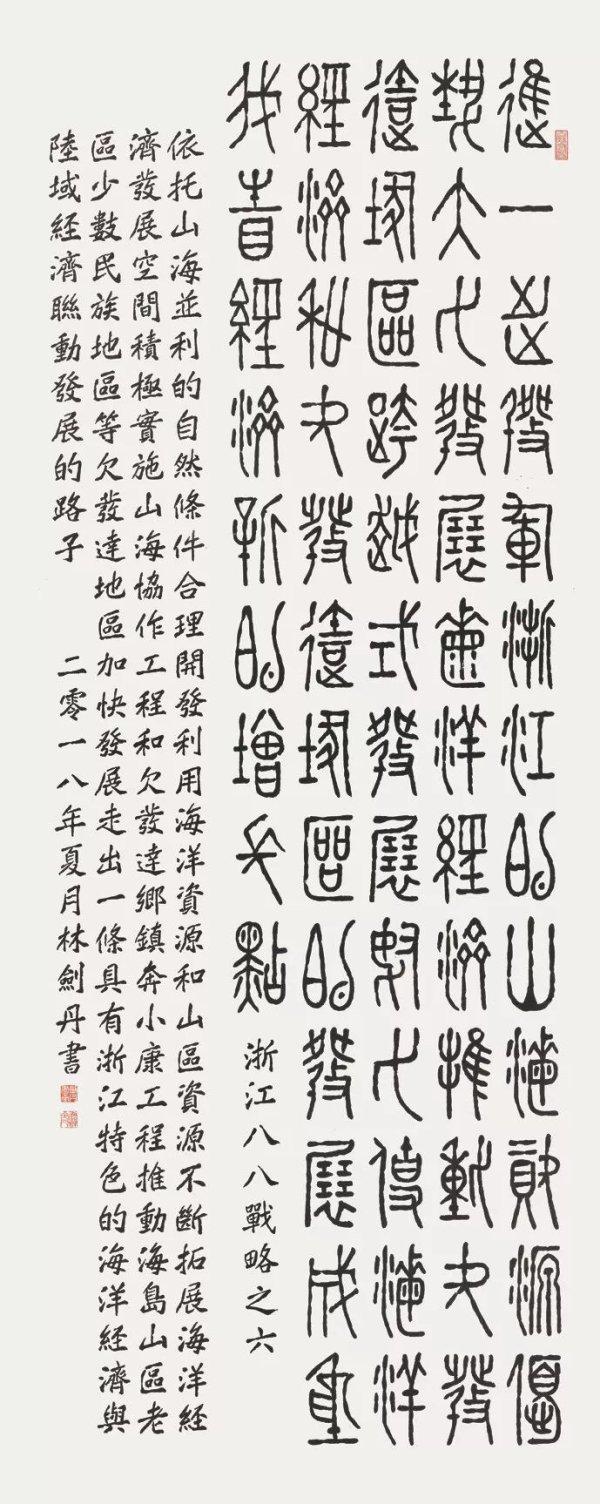 進一步發揮浙江的山海資源優
勢大力發展海洋經濟推動欠發
達地區跨越式發展努力使海洋
經濟和欠發達地區的發展成為
我省經濟新的增長點 浙江八八戰略之六
依托山海並利的自然條件合理開發利用海洋資源和山區資源不斷拓展海洋經
濟發展空間積極實施山海協作工程和欠發達鄉鎮奔小康工程推動海島山區老
區少數民族地區等欠發達地區加快發展走出一條具有浙江特色的海洋經濟與
陸域經濟聯動發展的路子 二零一八年夏月林劍丹書